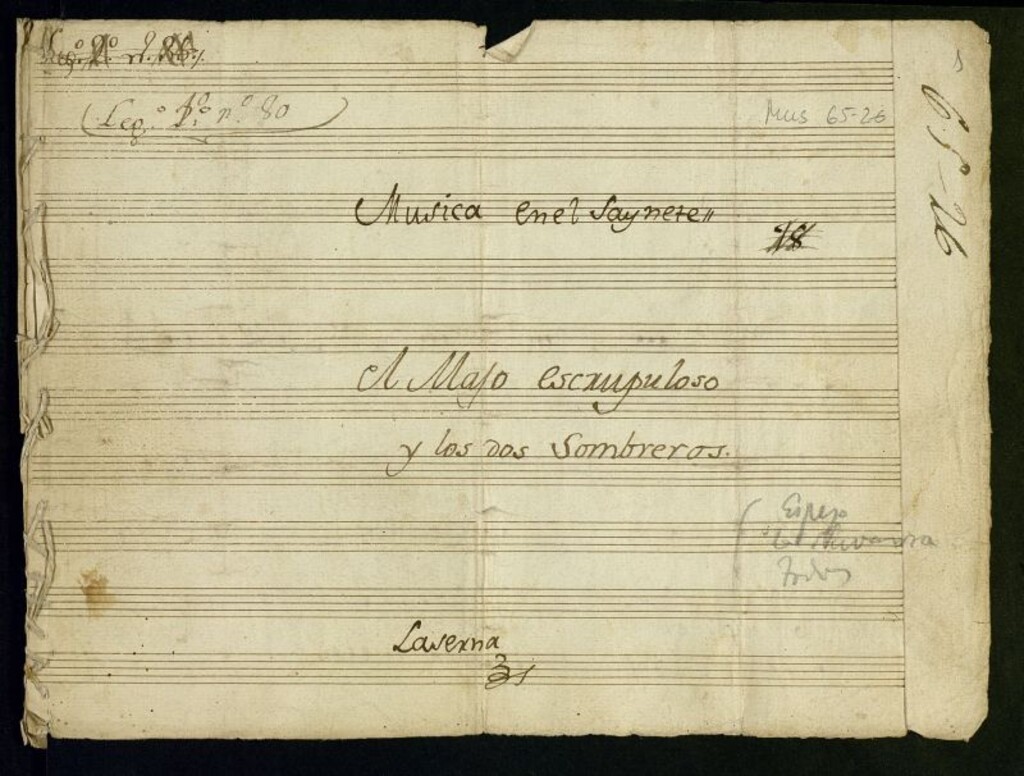 (Leg.º 1º nº 80)
Mus 65-26
65-26
Musica enel Saynete
18
El Majo escrupuloso
y los dos Sombreros.
Espejo
Todos
Laserna